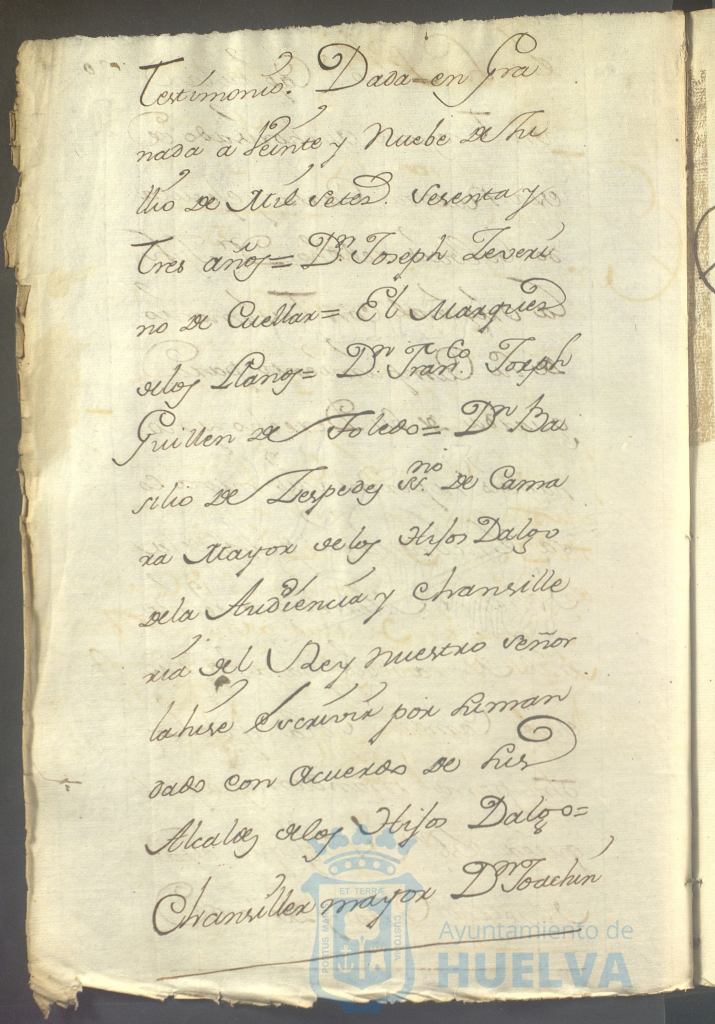 Testimonio. Dada en Gra
nada a Veinte y Nuebe de Ju
llio de Mil Setez. Sesenta y
Tres años= Dn. Joseph Zeveri
no de Cuellar= El Marques
delos Llanos= Dn. Franco. Joseph
Guillen de Toledo= Dn. Ba
silio de Zespedes SSno. de Cama
ra Mayor delos Hijos Dalgo
dela Audiencia y Chansille
ria del Rey Nuestro Señor
la hise Escrivir por su man
dado con acuerdo de sus
Alcaldes delos Hijos Dalgo=
Chansiller mayor Dn. Joachin
ET TERRÆ
PORTUS MA
CUSTODIA
Ayuntamiento de
HUELVA